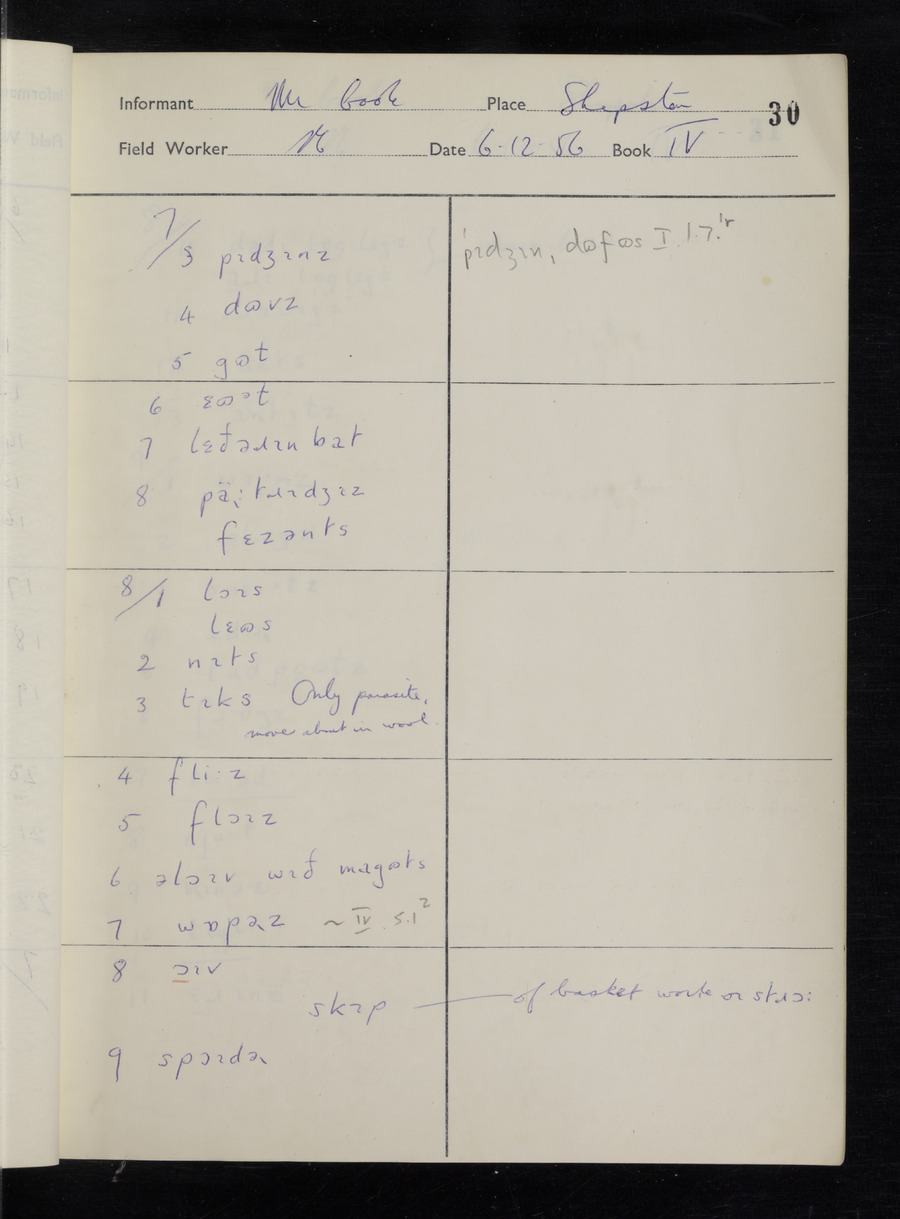 Informant Mr Cook Place Shipston 30
Field Worker Date 6-12-56 Book IV
7/3 pɪdʒɪnz
ˈpɪdʒɪn, dɷfɷs I.1.7.ˈr
4 dɷvz
5 gɷt
6 ɛɷᵊt
7 lɛðəɹɪn bat
8 pä:tɹɪdʒɪz
fɛzənts
8/1 lɔɪs
lɛɷs
2 nɪts
3 tɪks Only parasite,
moves about in wool.
4 fli:z
5 flɔɪz
6 əlɔɪv wɪð magɷts
7 wɒpəz ~ IV S.1²
8 ɔɪv
skɪp — of basket work or stɹɔ:
9 spɔɪdə